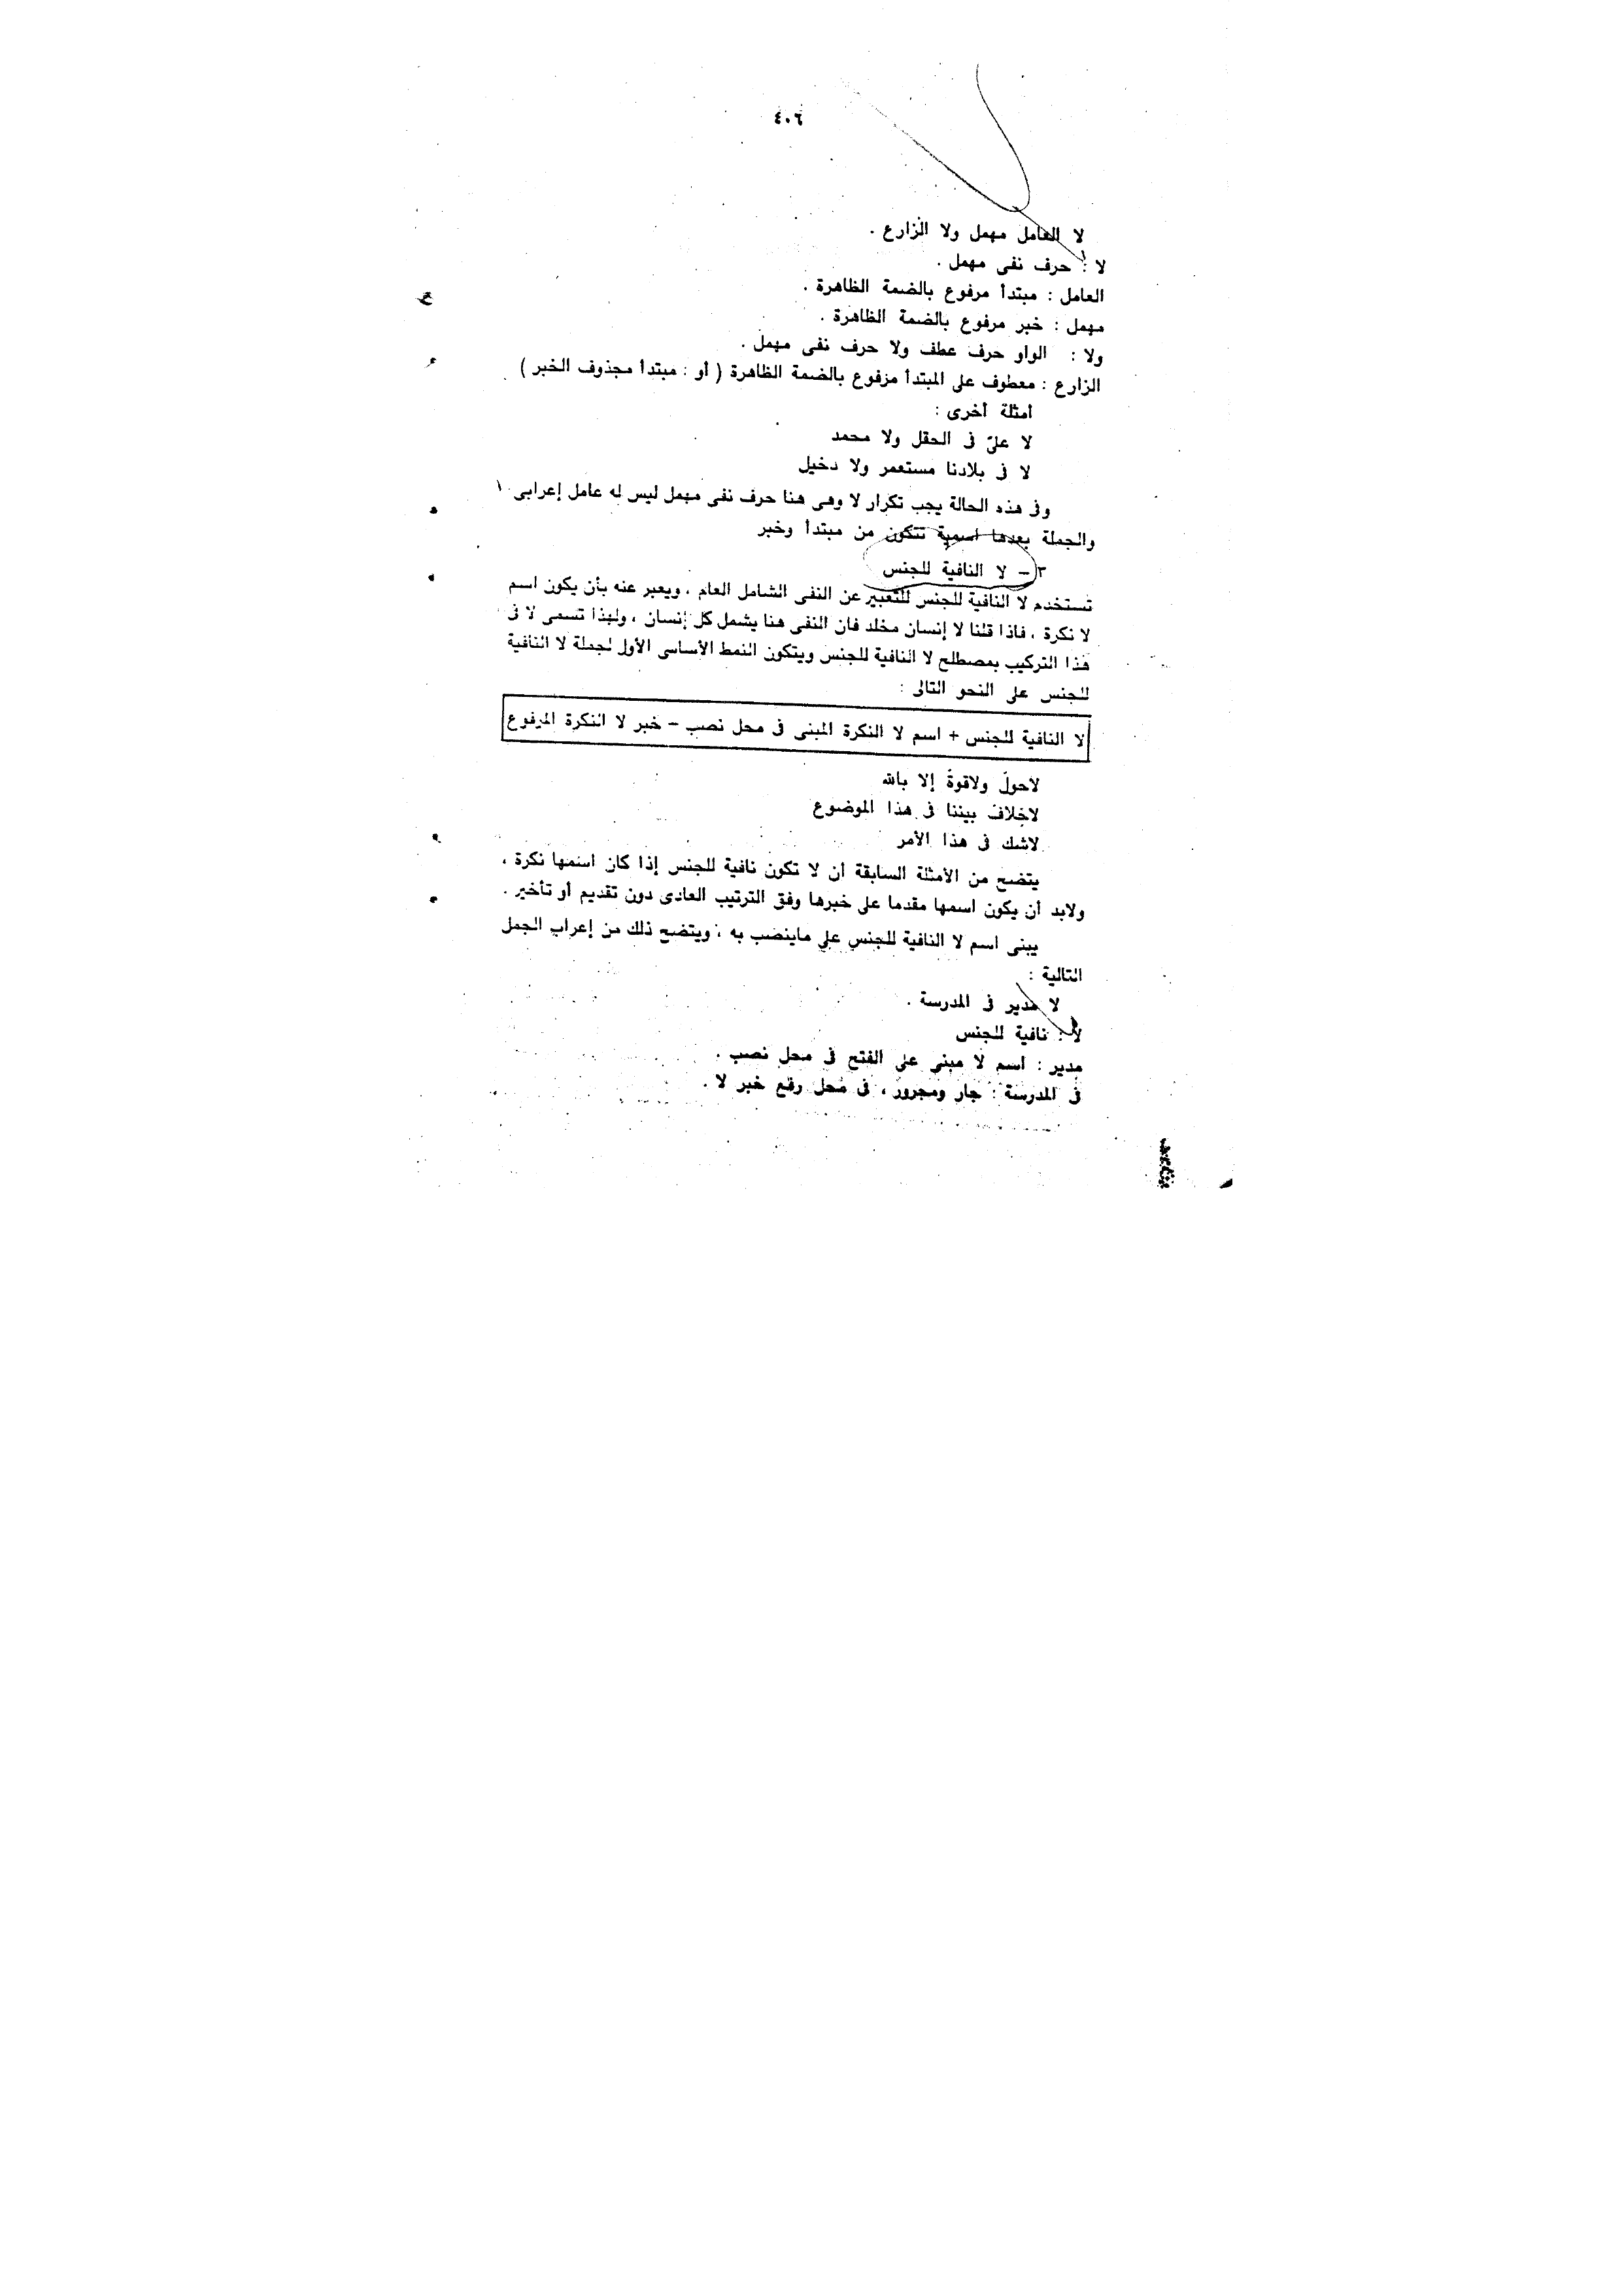 ٤٠٦
لا العامل مهمل ولا الزارع .
لا : حرف نفى مهمل .
العامل : مبتدأ مرفوع بالضمة الظاهرة .
مهمل : خبر مرفوع بالضمة الظاهرة .
ولا : الواو حرف عطف ولا حرف نفى مهمل .
الزارع : معطوف على المبتدأ مرفوع بالضمة الظاهرة ( أو : مبتدأ محذوف الخبر )
أمثلة أخرى :
لا علىّ فى الحقل ولا محمد
لا فى بلادنا مستعمر ولا دخيل
وفى هذه الحالة يجب تكرار لا وهى هنا حرف نفى مهمل ليس له عامل إعرابى
والجملة بعدها اسمية تتكون من مبتدأ وخبر
٣ – لا النافية للجنس
تستخدم لا النافية للجنس للتعبير عن النفى الشامل العام ، ويعبر عنه بأن يكون اسم
لا نكرة ، فاذا قلنا لا إنسان مخلد فان النفى هنا يشمل كل إنسان ، ولهذا تسمى لا فى
هذا التركيب بمصطلح لا النافية للجنس ويتكون النمط الأساسى الأول لجملة لا النافية
للجنس على النحو التالى :
لا النافية للجنس + اسم لا النكرة المبنى فى محل نصب – خبر لا النكرة المرفوع
لاحولَ ولاقوةَ إلا بالله
لاخلافَ بيننا فى هذا الموضوع
لاشك فى هذا الأمر
يتضح من الأمثلة السابقة أن لا تكون نافية للجنس إذا كان اسمها نكرة ،
ولابد أن يكون اسمها مقدما على خبرها وفق الترتيب العادى دون تقديم أو تأخير .
يبنى اسم لا النافية للجنس على ماينصب به ، ويتضح ذلك من إعراب الجمل
التالية :
لا مدير فى المدرسة .
لا : نافية للجنس
مدير : اسم لا مبنى على الفتح فى محل نصب .
فى المدرسة : جار ومجرور ، فى محل رفع خبر لا .